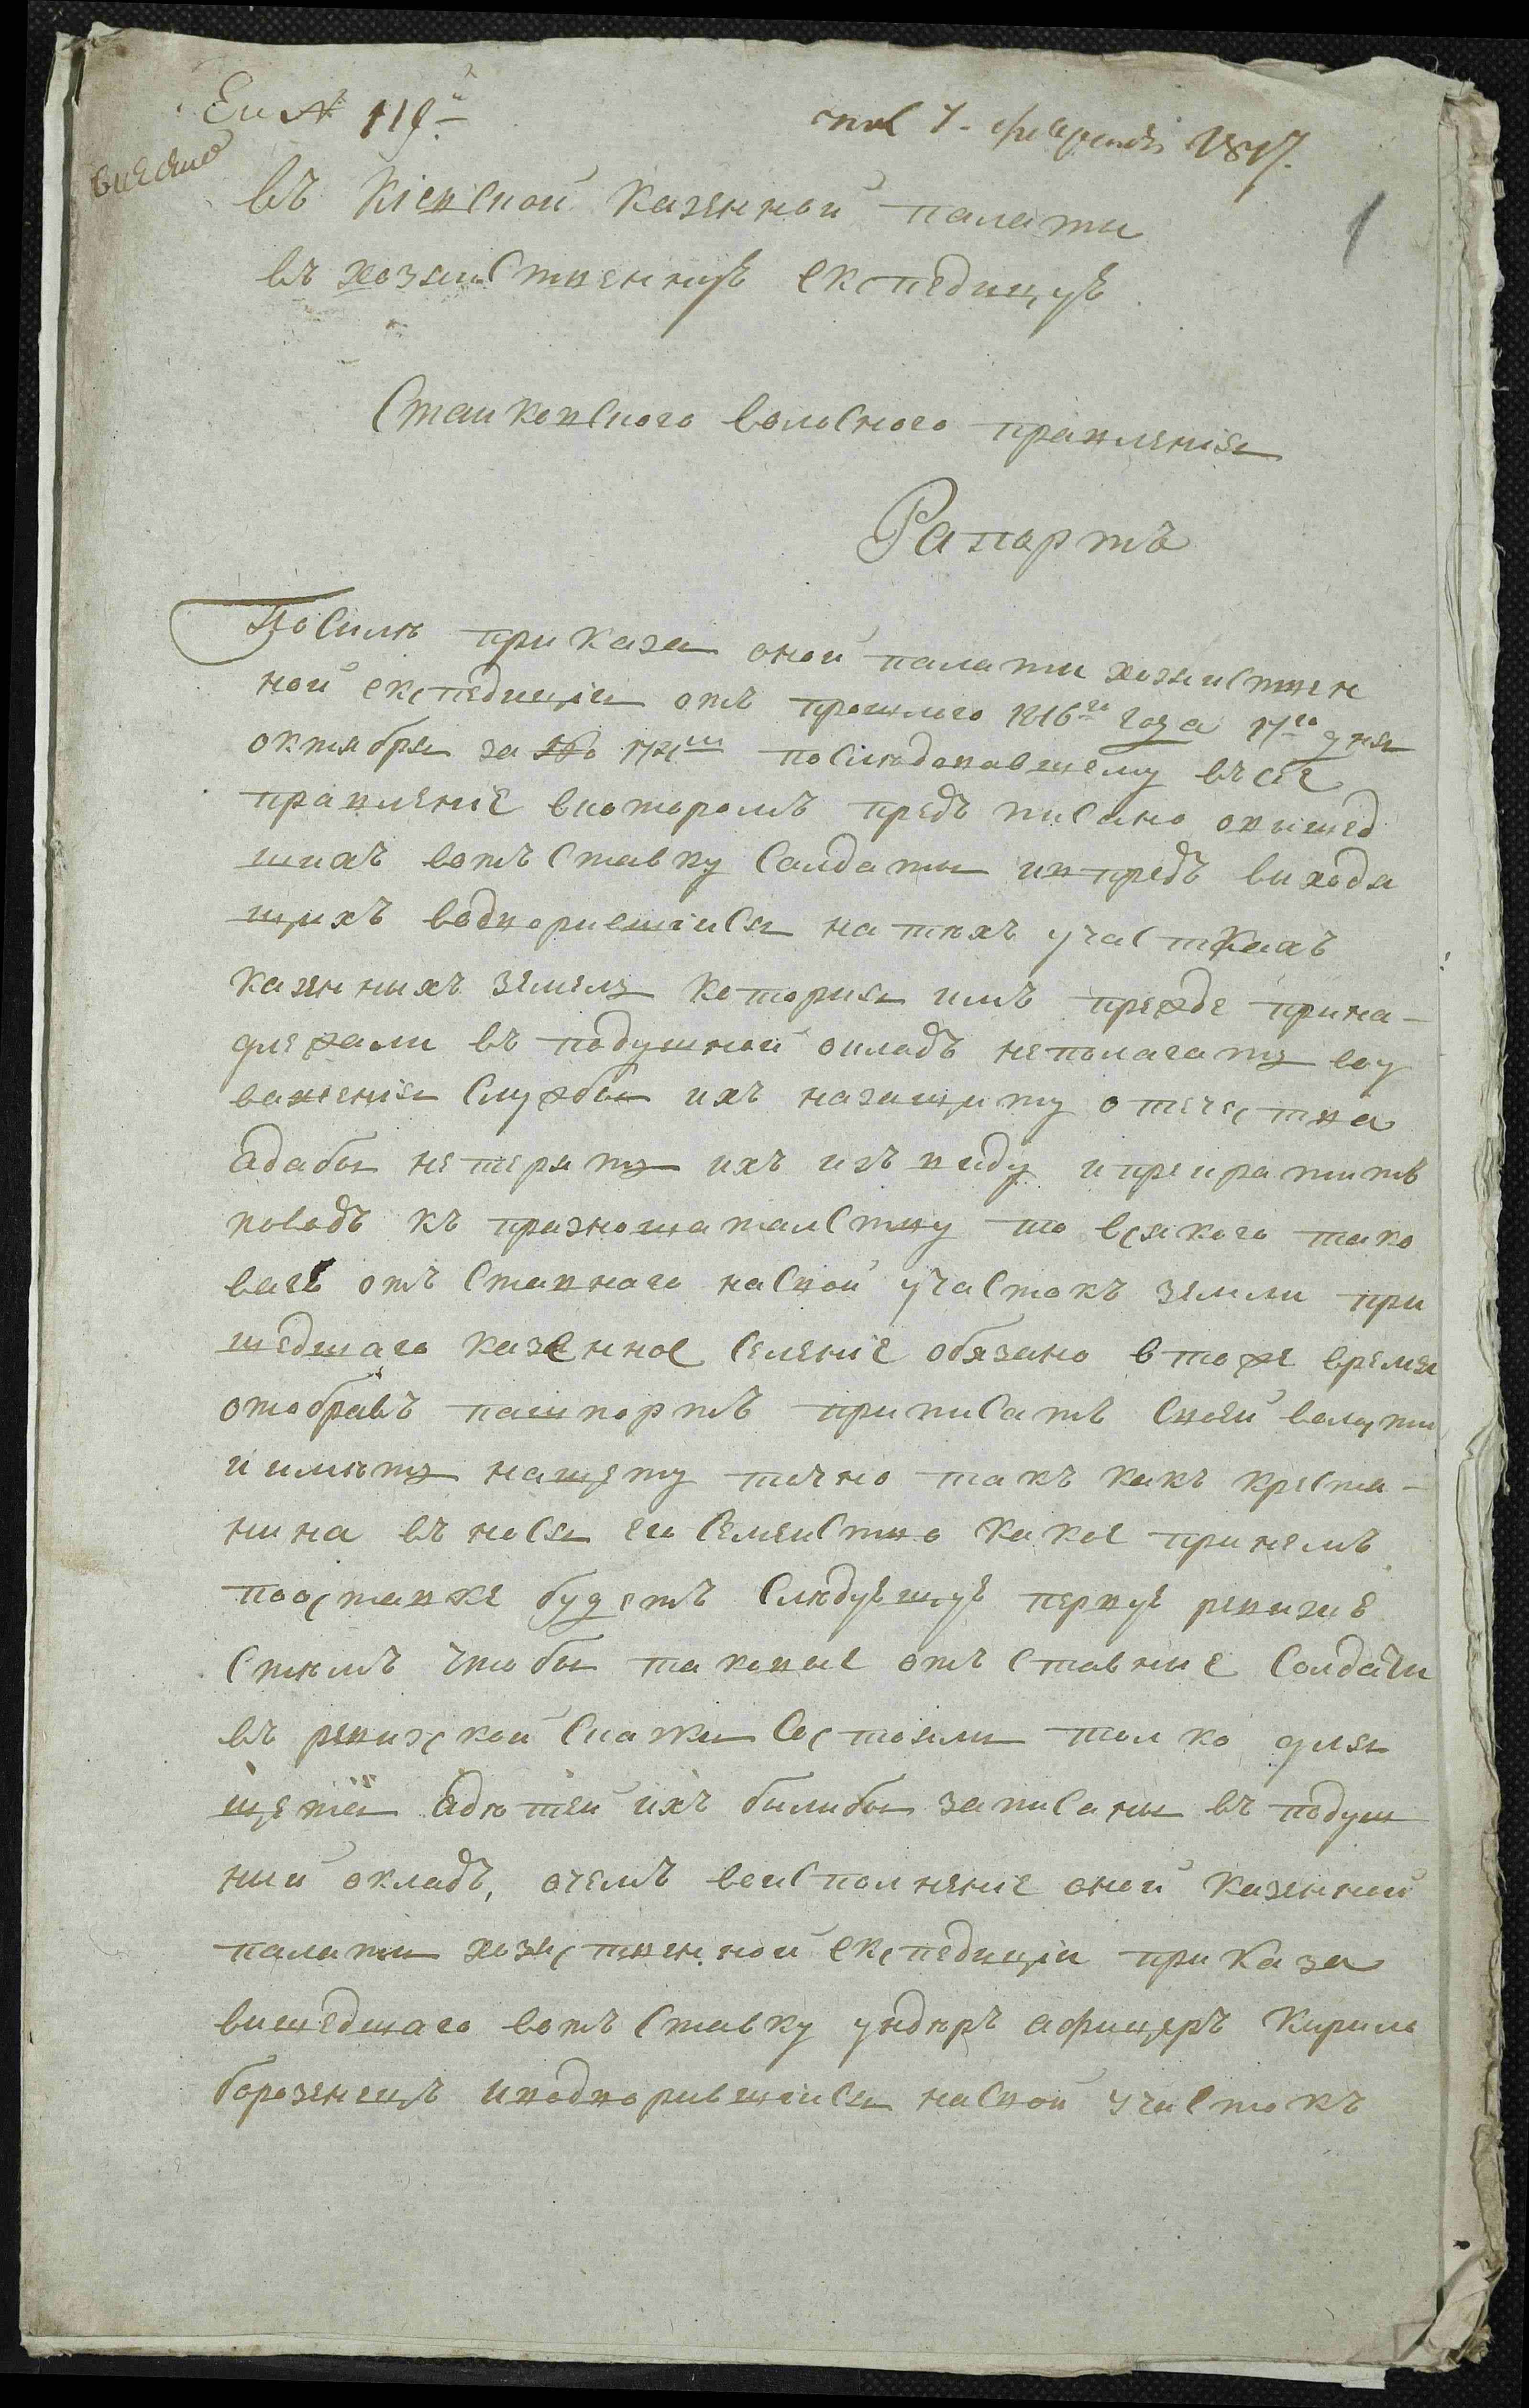 № 119й
7 февраля 1817.
внесено
1
въ Кіевской Казенной палати
въ хозяиственную експедицую
Стаиковского волосного правленія
Рапортъ
Посилѣ приказа оной палати хозяиствен
ной експедиціи отъ прошлого 1816го года 17го дня
октября за № послѣдовавшему въсіе
правленіе вкоторомъ предъ писано овышед
шихъ вотъ ставку салдаты ивпредъ выходя
щихъ водворившіися натѣхъ участкахъ
казенныхъ земель котория имъ прежде прина-
длежали въ подушной окладъ неполагать воу
важенія службы ихъ назащиту отечества
адабы нетерять ихъ изъ виду ипрекратить
поводъ къ празношаталству то всякого тако
ваго отъ ставного насвой участокъ земли при
шедшаго казенное селеніе обязано втоже время
отобравъ пашпортъ приписать своей волости
иимѣть нащету точно такъ какъ крестя-
нина въ нося ео семеиство какое принемъ
поставке будетъ слѣдующую первую ревизие
стѣмъ чтобы таковые отъ ставные солдати
въ ревизской скажи состояли толко для
щета адѣтей ихъ былибы записаны въ подуш
ный окладъ, очемъ воисполненіе оной казенной
палати хозяственной експедиціи приказа
вишедшаго вотъ ставку ундѣръ афицеръ Кирило
борозенецъ иводворившіися насвой участокъ